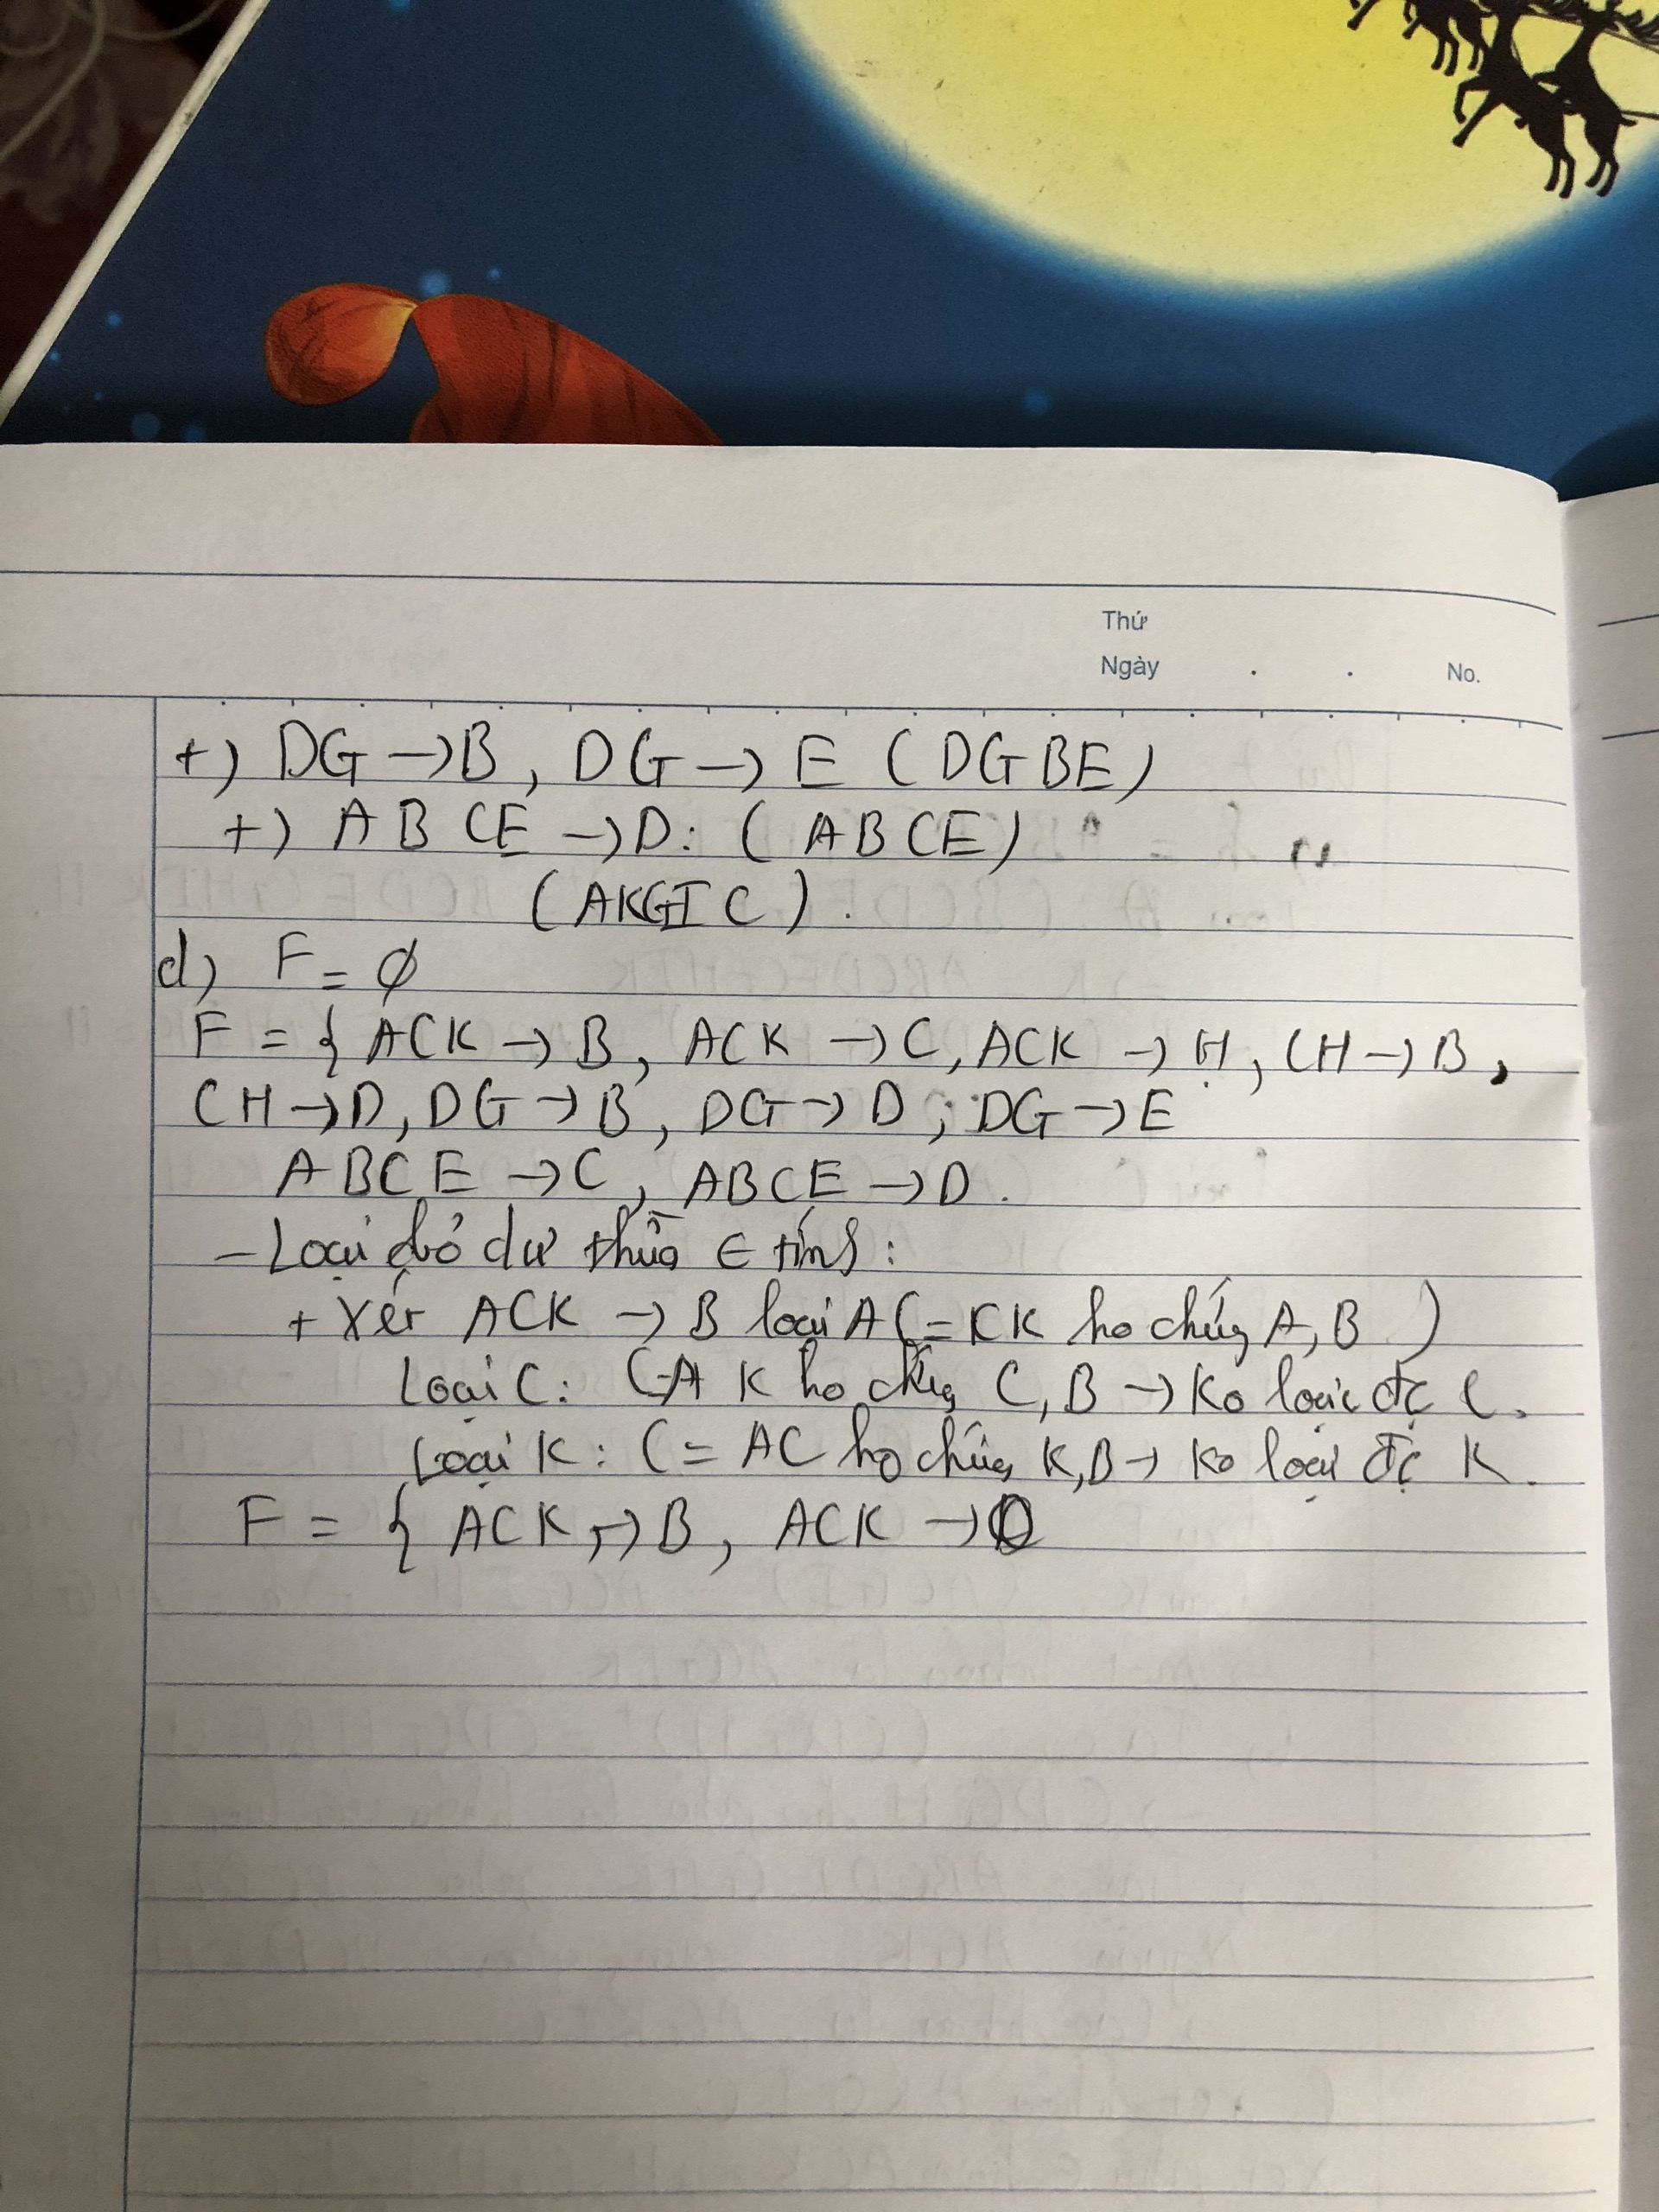 Thứ
Ngày . . No.
+) DG → B, DG → E (DGBE)
+) ABCE → D: (ABCE)
(AKGIC).
d) F = ∅
F = { ACK → B, ACK → C, ACK → H, CH → B,
CH → D, DG → B, DG → D; DG → E
ABCE → C, ABCE → D.
- Loại bỏ dư thừa t tính:
+ Xét ACK → B loại A (= CK ko chứa A, B )
Loại C: ( A K ko chứa C, B → Ko loại đc C.
Loại K: ( = AC ko chứa K, B → Ko loại đc K.
F = { ACK → B, ACK →